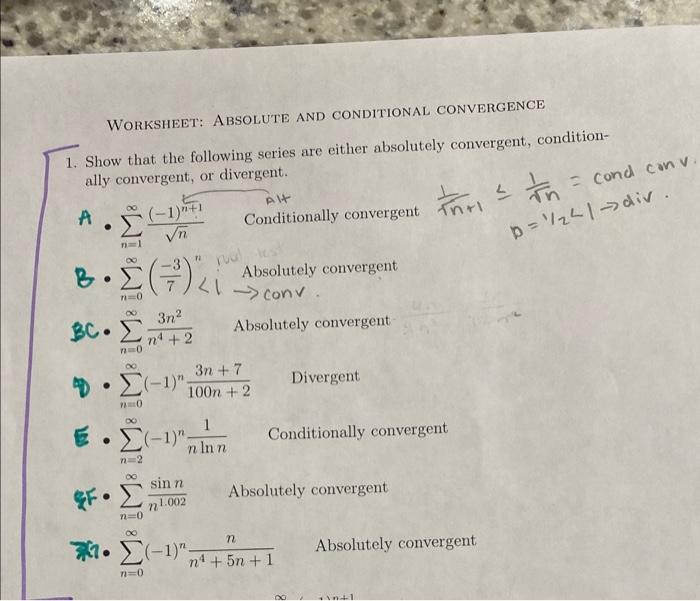 WORKSHEET: ABSOLUTE AND CONDITIONAL CONVERGENCE
1. Show that the following series are either absolutely convergent, condition-
ally convergent, or divergent.
A • ∑_{n=1}^{∞} (-1)^{n+1}/√n Alt Conditionally convergent 1/√n+1 ≤ 1/√n = cond conv.
p = 1/2 < 1 → div.
B • ∑_{n=0}^{∞} (-3/7)^n < 1 → conv. Absolutely convergent
C • ∑_{n=0}^{∞} 3n²/(n⁴ + 2) Absolutely convergent
D • ∑_{n=0}^{∞} (-1)^n (3n + 7)/(100n + 2) Divergent
E • ∑_{n=2}^{∞} (-1)^n 1/(n ln n) Conditionally convergent
F • ∑_{n=0}^{∞} sin n/n^{1.002} Absolutely convergent
• ∑_{n=0}^{∞} (-1)^n n/(n⁴ + 5n + 1) Absolutely convergent